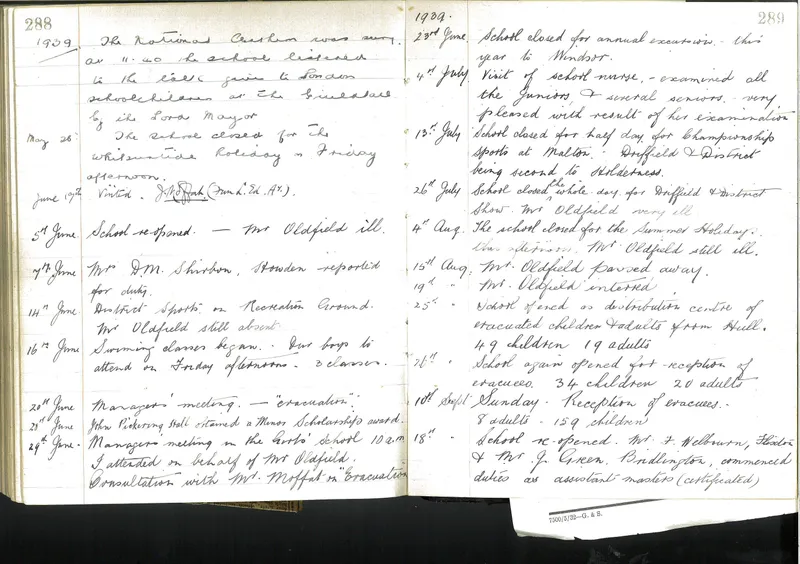 288
1939. The National Anthem was sung
at 11.40 the school listened
to the talk given to London
schoolchildren at the Guildhall
by the Lord Mayor
May 26 The school closed for the
Whitsuntide holiday on Friday
afternoon.
June 7th Visited.
5th June School re-opened. — Mr Oldfield ill.
7th June Mr D.M. Shirbon, Howden reported
for duty.
14th June District Sports on Recreation Ground.
Mr Oldfield still absent
16th June Swimming classes began. - Our boys to
attend on Friday afternoons. 3 classes.
20th June Managers' meeting. — "evacuation".
21st June John Pickering Stott obtained a Minor Scholarship award.
29th June. Managers meeting in the Girls' School 10 a.m
I attended on behalf of Mr Oldfield.
Consultation with Mr. Moffat on "Evacuation
289
1939.
23rd June School closed for annual excursion - this
year to Windsor.
4th July Visit of school nurse, - examined all
the Juniors, & several seniors - very
pleased with result of her examination
13th July School closed for half day for Championship
Sports at Malton. Driffield & District
being second to Holderness.
26th July School closed the whole day for Driffield & District
Show. Mr Oldfield very ill
4th Aug. The school closed for the Summer Holiday.
this afternoon. Mr Oldfield still ill.
15th Aug. Mr. Oldfield passed away.
19th " Mr. Oldfield interred
25th " School opened as distribution centre of
evacuated children & adults from Hull.
49 children 19 adults
" School again opened for reception of
evacuees. 34 children 20 adults
10th Sept Sunday - Reception of evacuees -
8 adults - 159 children
18th " School re-opened. Mr. F. Welbourn,
& Mr J. Green, Bridlington, commenced
duties as assistant masters (certificated)
7500/5/32—G. & S.